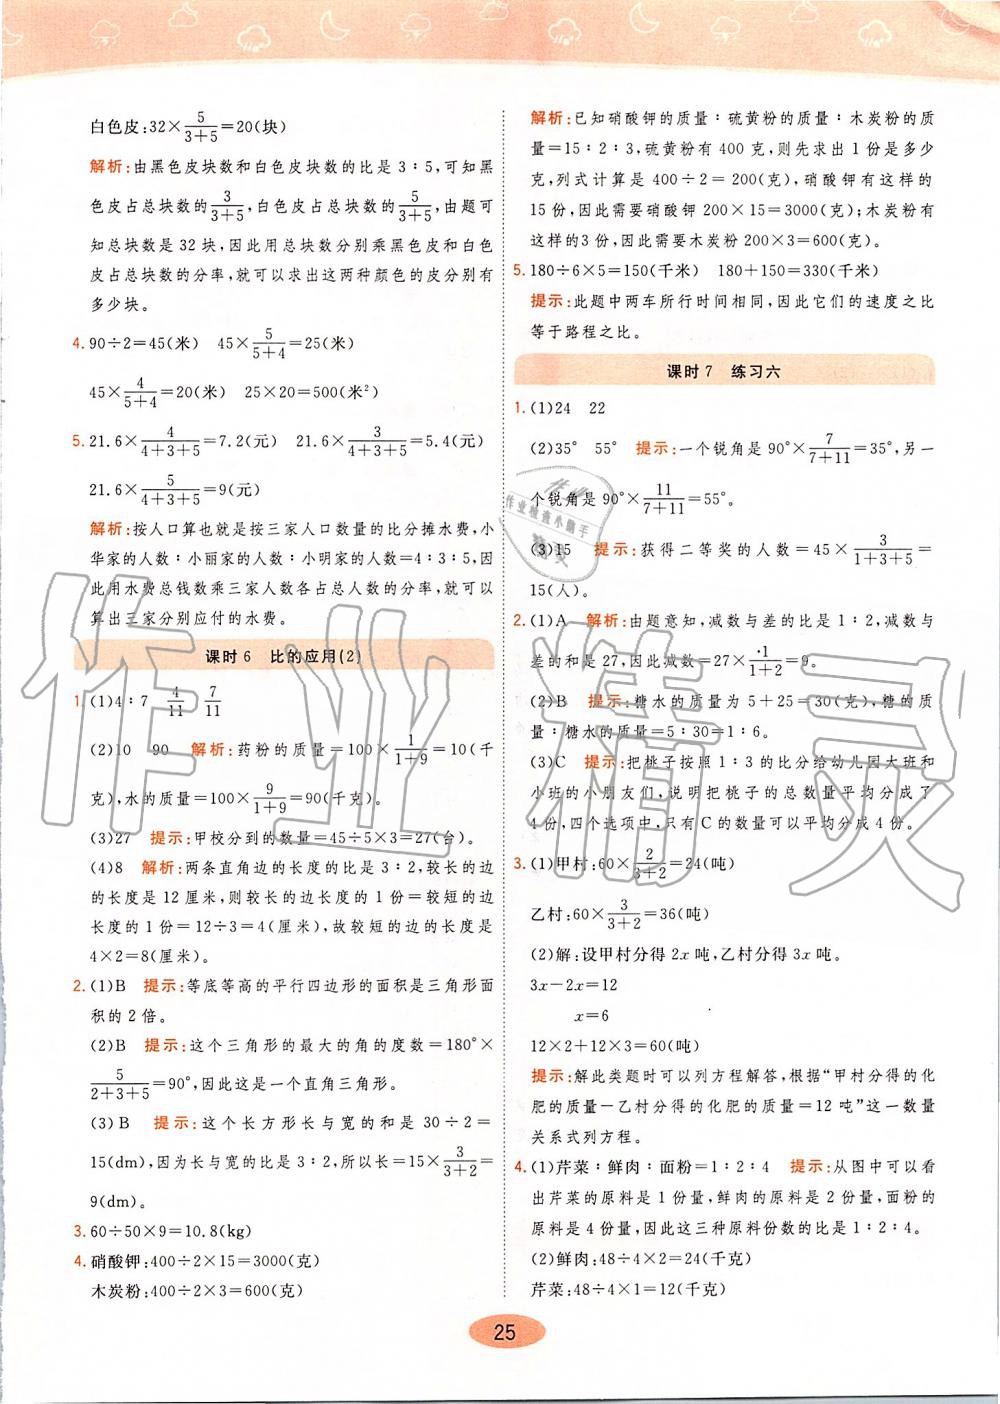 白色皮:32×5/(3+5)=20(块)
解析:由黑色皮块数和白色皮块数的比是 3∶5,可知黑
色皮占总块数的3/(3+5),白色皮占总块数的5/(3+5),由题可
知总块数是 32 块,因此用总块数分别乘黑色皮和白色
皮占总块数的分率,就可以求出这两种颜色的皮分别有
多少块。
4. 90÷2=45(米) 45×5/(5+4)=25(米)
45×4/(5+4)=20(米) 25×20=500(米²)
5. 21.6×4/(4+3+5)=7.2(元) 21.6×3/(4+3+5)=5.4(元)
21.6×5/(4+3+5)=9(元)
解析:按人口算也就是按三家人口数量的比分摊水费,小
华家的人数∶小丽家的人数∶小明家的人数=4∶3∶5,因
此用水费总钱数乘三家人数各占总人数的分率,就可以
算出三家分别应付的水费。
课时 6 比的应用(2)
1. (1)4∶7 4/11 7/11
(2)10 90 解析:药粉的质量=100×1/(1+9)=10(千
克),水的质量=100×9/(1+9)=90(千克)。
(3)27 提示:甲校分到的数量=45÷5×3=27(台)。
(4)8 解析:两条直角边的长度的比是 3∶2,较长的边
的长度是 12 厘米,则较长的边的长度的 1 份=较短的边
长度的 1 份=12÷3=4(厘米),故较短的边的长度是
4×2=8(厘米)。
2. (1)B 提示:等底等高的平行四边形的面积是三角形面
积的 2 倍。
(2)B 提示:这个三角形的最大的角的度数=180°×
5/(2+3+5)=90°,因此这是一个直角三角形。
(3)B 提示:这个长方形长与宽的和是 30÷2=
15(dm),因为长与宽的比是 3∶2,所以长=15×3/(3+2)=
9(dm)。
3. 60÷50×9=10.8(kg)
4. 硝酸钾:400÷2×15=3000(克)
木炭粉:400÷2×3=600(克)
解析:已知硝酸钾的质量∶硫黄粉的质量∶木炭粉的质
量=15∶2∶3,硫黄粉有 400 克,则先求出 1 份是多少
克,列式计算是 400÷2=200(克),硝酸钾有这样的
15份,因此需要硝酸钾 200×15=3000(克);木炭粉有
这样的3份,因此需要木炭粉 200×3=600(克)。
5. 180÷6×5=150(千米) 180+150=330(千米)
提示:此题中两车所行时间相同,因此它们的速度之比
等于路程之比。
课时 7 练习六
1. (1)24 22
(2)35° 55° 提示:一个锐角是 90°×7/(7+11)=35°,另一
个锐角是 90°×11/(7+11)=55°。
(3)15 提示:获得二等奖的人数=45×3/(1+3+5)=
15(人)。
2. (1)A 解析:由题意知,减数与差的比是 1∶2,减数与
差的和是 27,因此减数=27×1/(1+2)=9。
(2)B 提示:糖水的质量为 5+25=30(克),糖的质
量∶糖水的质量=5∶30=1∶6。
(3)C 提示:把桃子按照 1∶3 的比分给幼儿园大班和
小班的小朋友们,说明把桃子的总数量平均分成了
4 份,四个选项中,只有 C 的数量可以平均分成 4 份。
3. (1)甲村:60×2/(3+2)=24(吨)
乙村:60×3/(3+2)=36(吨)
(2)解:设甲村分得 2x 吨,乙村分得 3x 吨。
3x-2x=12
x=6
12×2+12×3=60(吨)
提示:解此类题时可以列方程解答,根据“甲村分得的化
肥的质量-乙村分得的化肥的质量=12 吨”这一数量
关系式列方程。
4. (1)芹菜∶鲜肉∶面粉=1∶2∶4 提示:从图中可以看
出芹菜的原料是 1 份量,鲜肉的原料是 2 份量,面粉的
原料是 4 份量,因此这三种原料份数的比是 1∶2∶4。
(2)鲜肉:48÷4×2=24(千克)
芹菜:48÷4×1=12(千克)
25
作业精灵
作业检查小助手